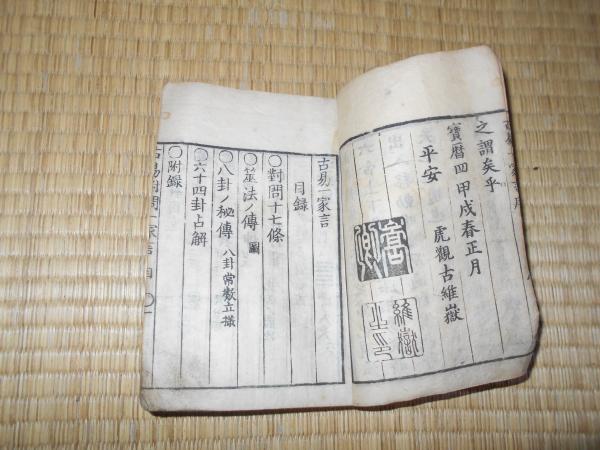 之謂矣乎
寶曆四甲戌春正月
平安 虎觀古維嶽
維嶽
之印
古易一家言
目録
〇對問十七條
〇筮法ノ傳 圖
〇八卦ノ秘傳 八卦常數立様
〇六十四卦占解
〇附録
古易對問一家言 目 〇一